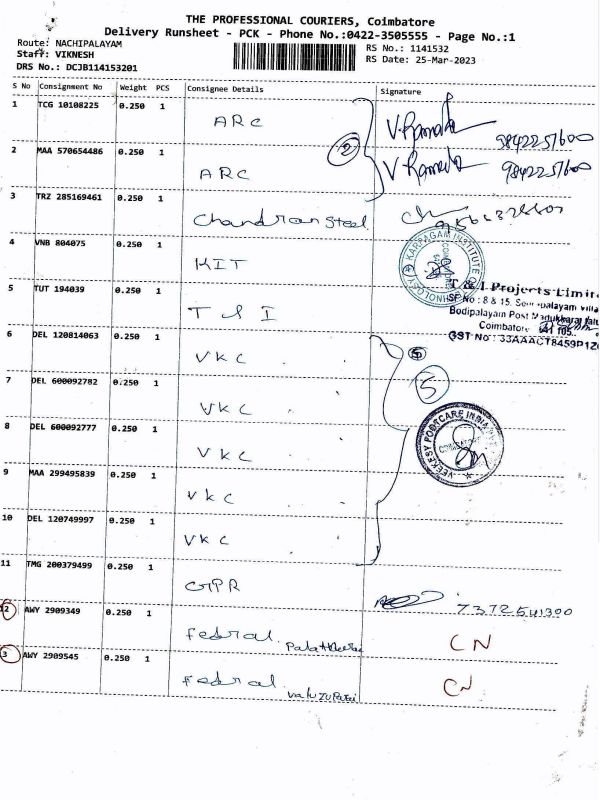 THE PROFESSIONAL COURIERS, Coimbatore
Delivery Runsheet - PCK - Phone No.:0422-3505555 - Page No.:1
Route: NACHIPALAYAM RS No.: 1141532
Staff: VIKNESH RS Date: 25-Mar-2023
DRS No.: DCJB114153201
S No Consignment No Weight PCS Consignee Details Signature
1 TCG 10108225 0.250 1 ARC V. 9842257600
2
2 MAA 570654486 0.250 1 ARC V. 9842257600
3 TRZ 285169461 0.250 1 Chandran Steel
4 VNB 804075 0.250 1 KIT
KARPAGAM INSTITUTE OF TECHNOLOGY
5 TUT 194039 0.250 1 T & I
T & I Projects Limit
SF No : 8 & 15,
Bodipalayam Post
Coimbatore
GST No : 33AAACT8459P1Z
6 DEL 120814063 0.250 1 VKC
5
7 DEL 600092782 0.250 1 VKC
8 DEL 600092777 0.250 1 VKC
VEEKESY POLYCARE INDIA
9 MAA 299495839 0.250 1 VKC
10 DEL 120749997 0.250 1 VKC
11 TMG 200379499 0.250 1 GPR
12 AWY 2909349 0.250 1 Federal CN
3 AWY 2909545 0.250 1 Federal CN